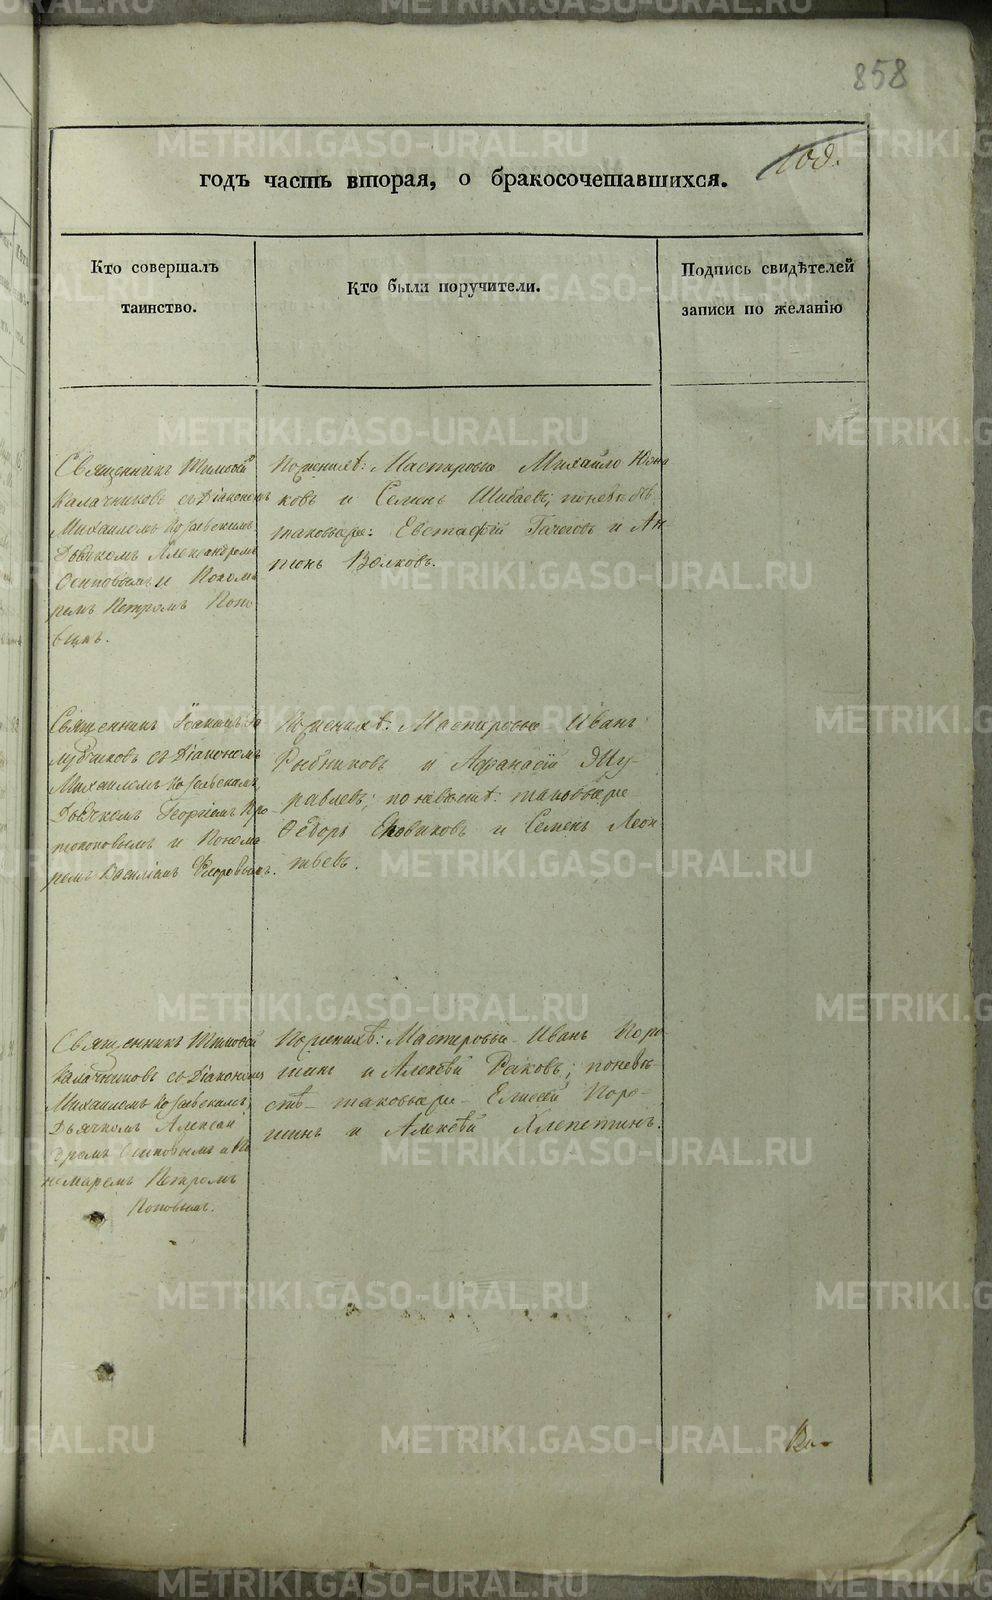 858
108.
годъ часть вторая, о бракосочетавшихся.
Кто совершалъ
таинство.
Кто были поручители.
Подпись свидѣтелей
записи по желанію
Священникъ Тимофей
Калачниковъ съ Діакономъ
Михаиломъ
Дьячкомъ Александромъ
Осиповымъ и Понома
ремъ Петромъ Попо
вымъ.
По женихѣ: Мастеровые Михайло
ковъ и Семенъ Шибаевъ; по невѣстѣ
таковые же: Евстафій и Ан
тонъ Волковъ.
Священникъ Іоаннъ
съ Діакономъ
Михаиломъ
Дьячкомъ Георгіемъ Про
топоповымъ и Понома
ремъ Василіемъ Ѳедоровымъ.
По женихѣ: Мастеровые Иванъ
Рыбниковъ и Афанасій Жу-
равлевъ; по невѣстѣ: таковые же
Ѳедоръ и Семенъ Леон
тьевъ.
Священникъ Тимофей
Калачниковъ съ Діакономъ
Михаиломъ
Дьячкомъ Алексан
дромъ Осиповымъ и По
номаремъ Петромъ
Поповымъ.
По женихѣ: Мастеровые Иванъ Поро
шинъ и Алексѣй Раковъ; по невѣ
стѣ - таковые же - Елисей Поро-
шинъ и Алексѣй Хлепетинъ.
METRIKI.GASO-URAL.RU